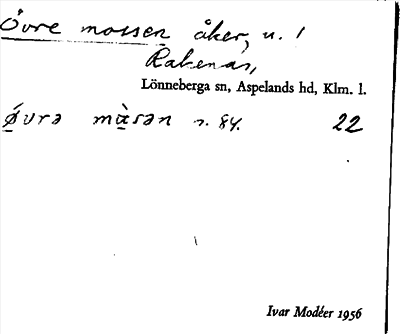 Övre mossen åker, u. 1
Rakenäs,
Lönneberga sn, Aspelands hd, Klm. l.
ǿvrə mɑ̀sən s. 84. 22
Ivar Modéer 1956